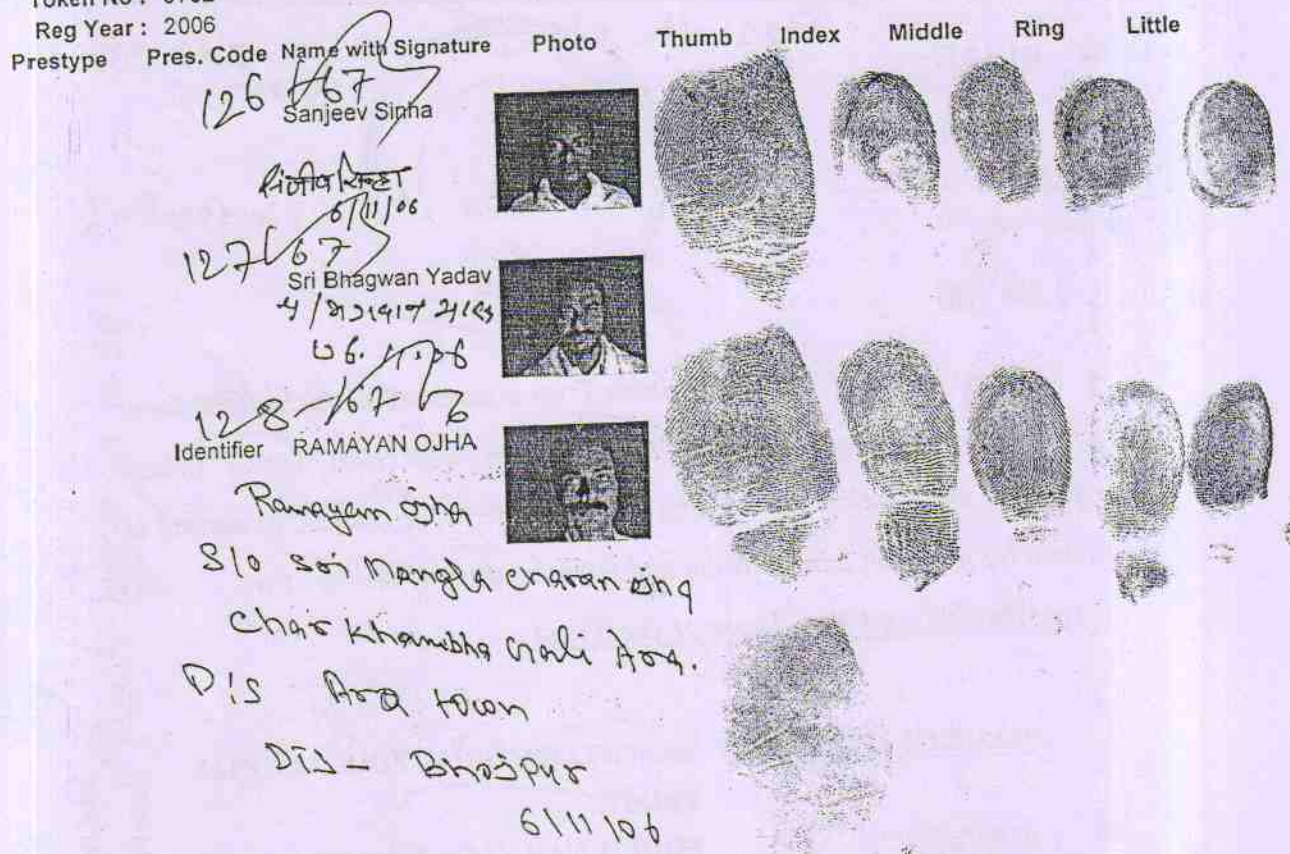 Reg Year : 2006
Prestype Pres. Code Name with Signature Photo Thumb Index Middle Ring Little
126 / 67
Sanjeev Sinha
संजीव सिन्हा
6/11/06
127 / 67
Sri Bhagwan Yadav
06.11.06
128 / 67
Identifier RAMAYAN OJHA
Ramayan ojha
S/o Sri Mangla charan ojha
Char Khambha Gali Ara.
P.S Ara town
DIS - Bhojpur
6/11/06